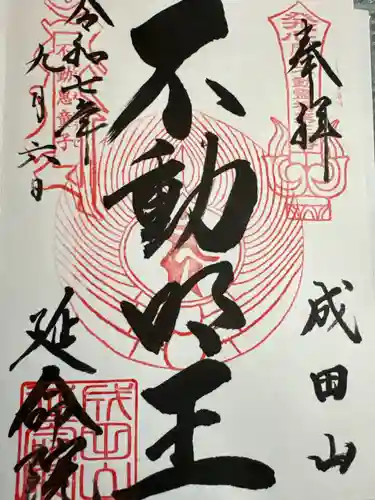 奉拝
成田山
不動明王
令和七年
九月六日
延命院